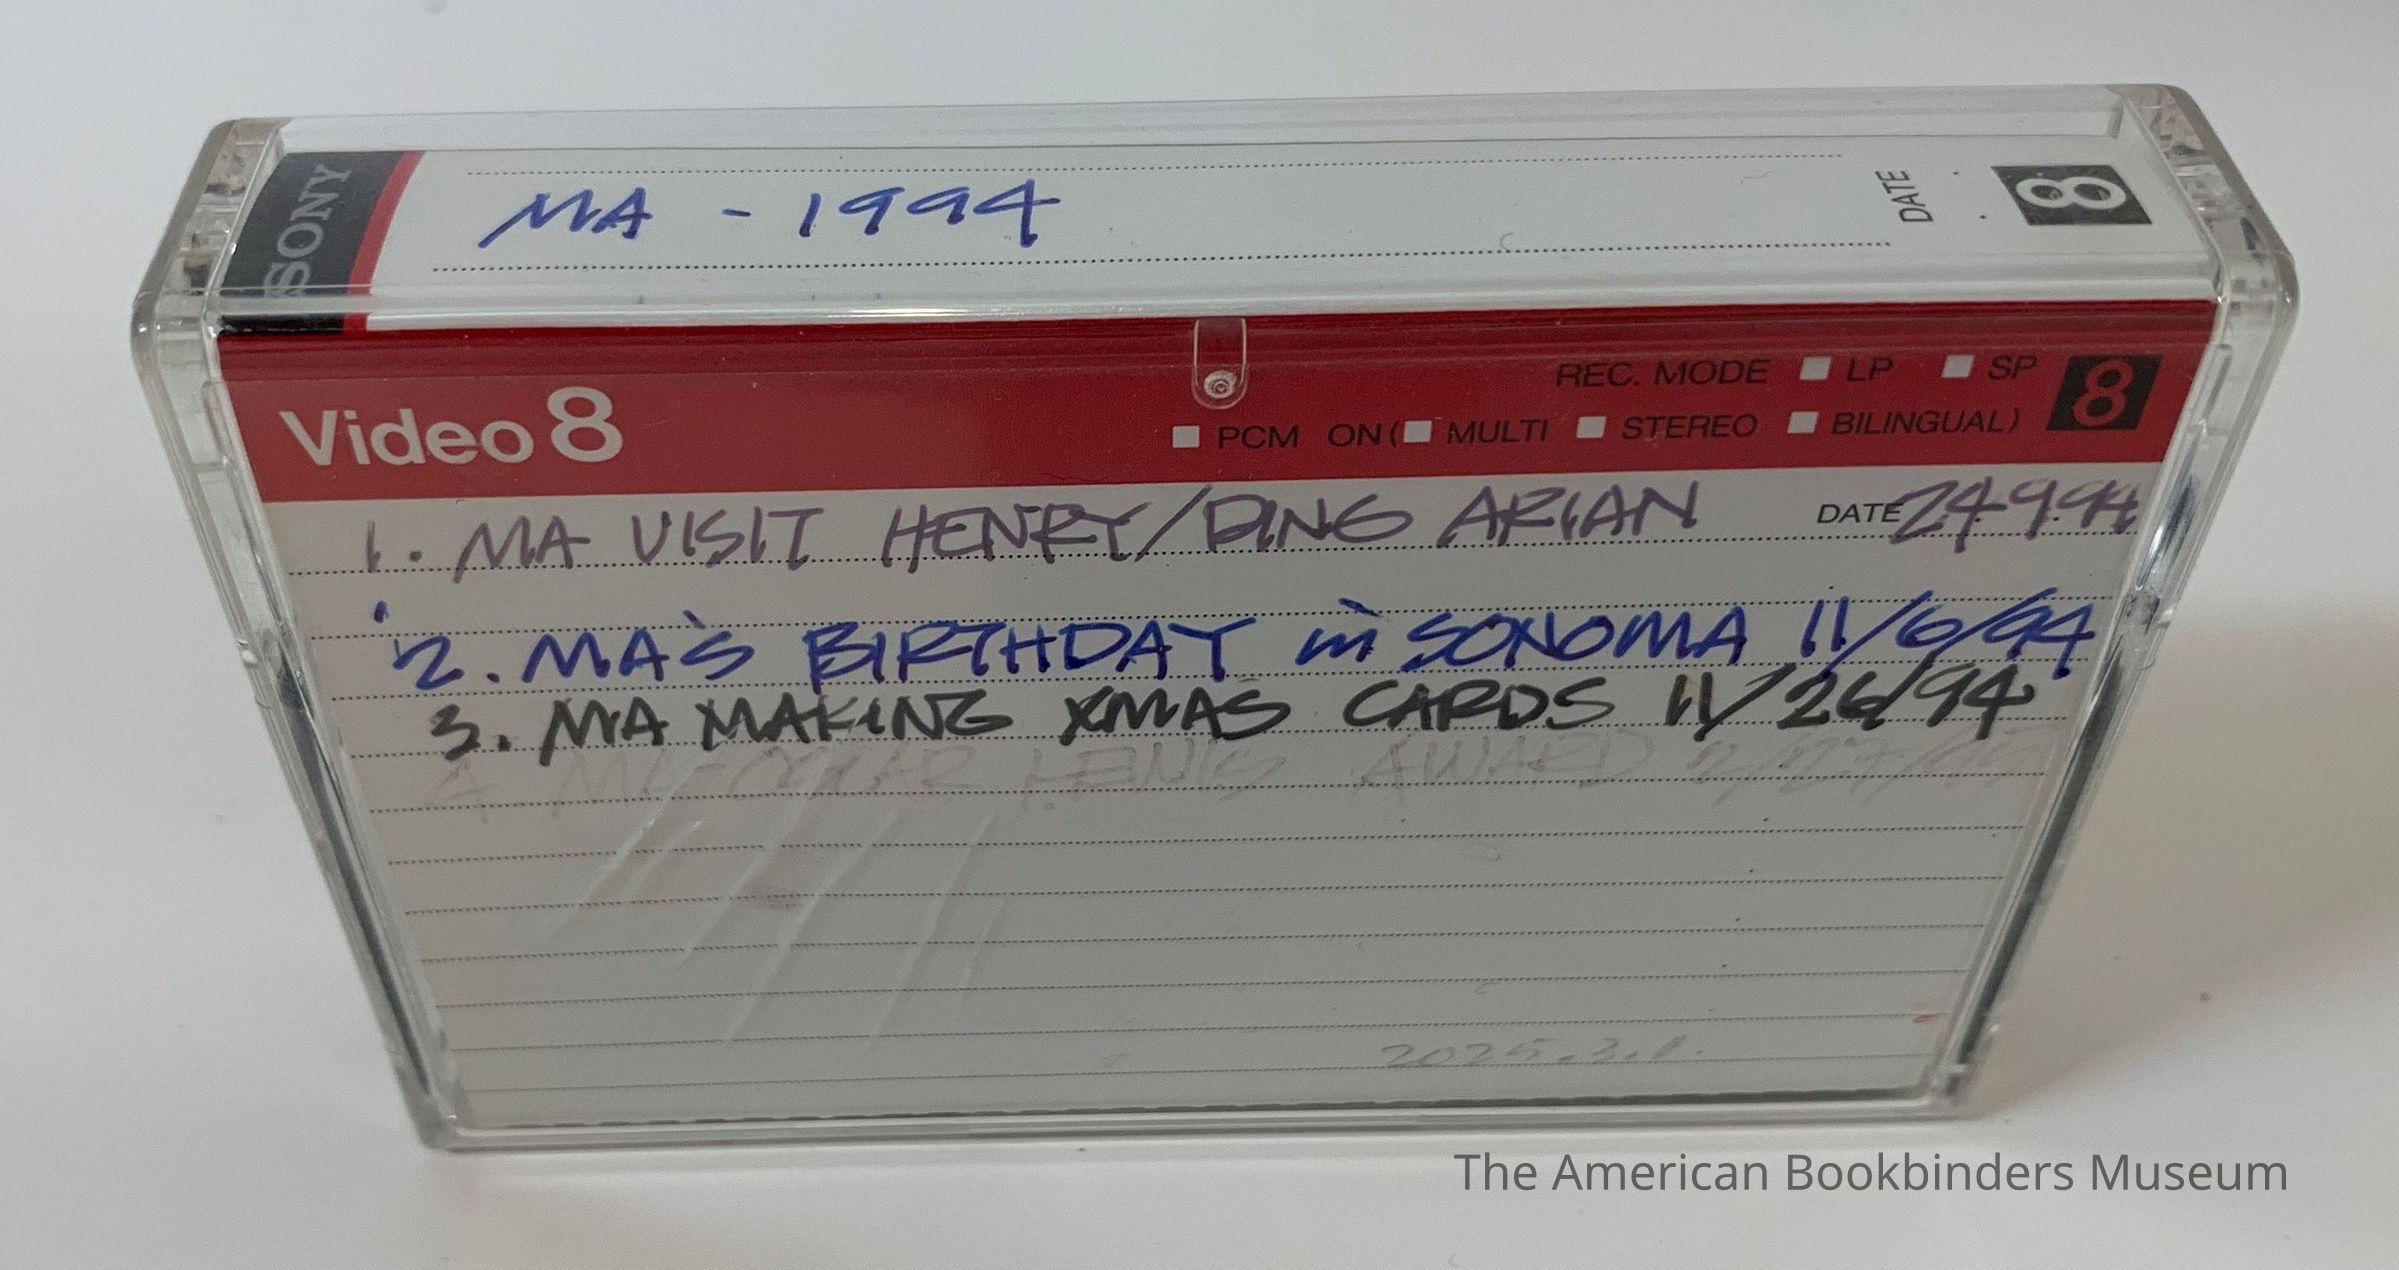 SONY
MA - 1994
DATE
8
Video 8
REC. MODE LP SP 8
PCM ON ( MULTI STEREO BILINGUAL)
1. MA VISIT HENRY/DING ARIAN DATE 24.9.94
2. MA'S BIRTHDAY in SONOMA 11/6/94
3. MA MAKING XMAS CARDS 11/26/94
4. MA- OSCAR LEWIS AWARD 2/27/95
2025.2.1.
The American Bookbinders Museum